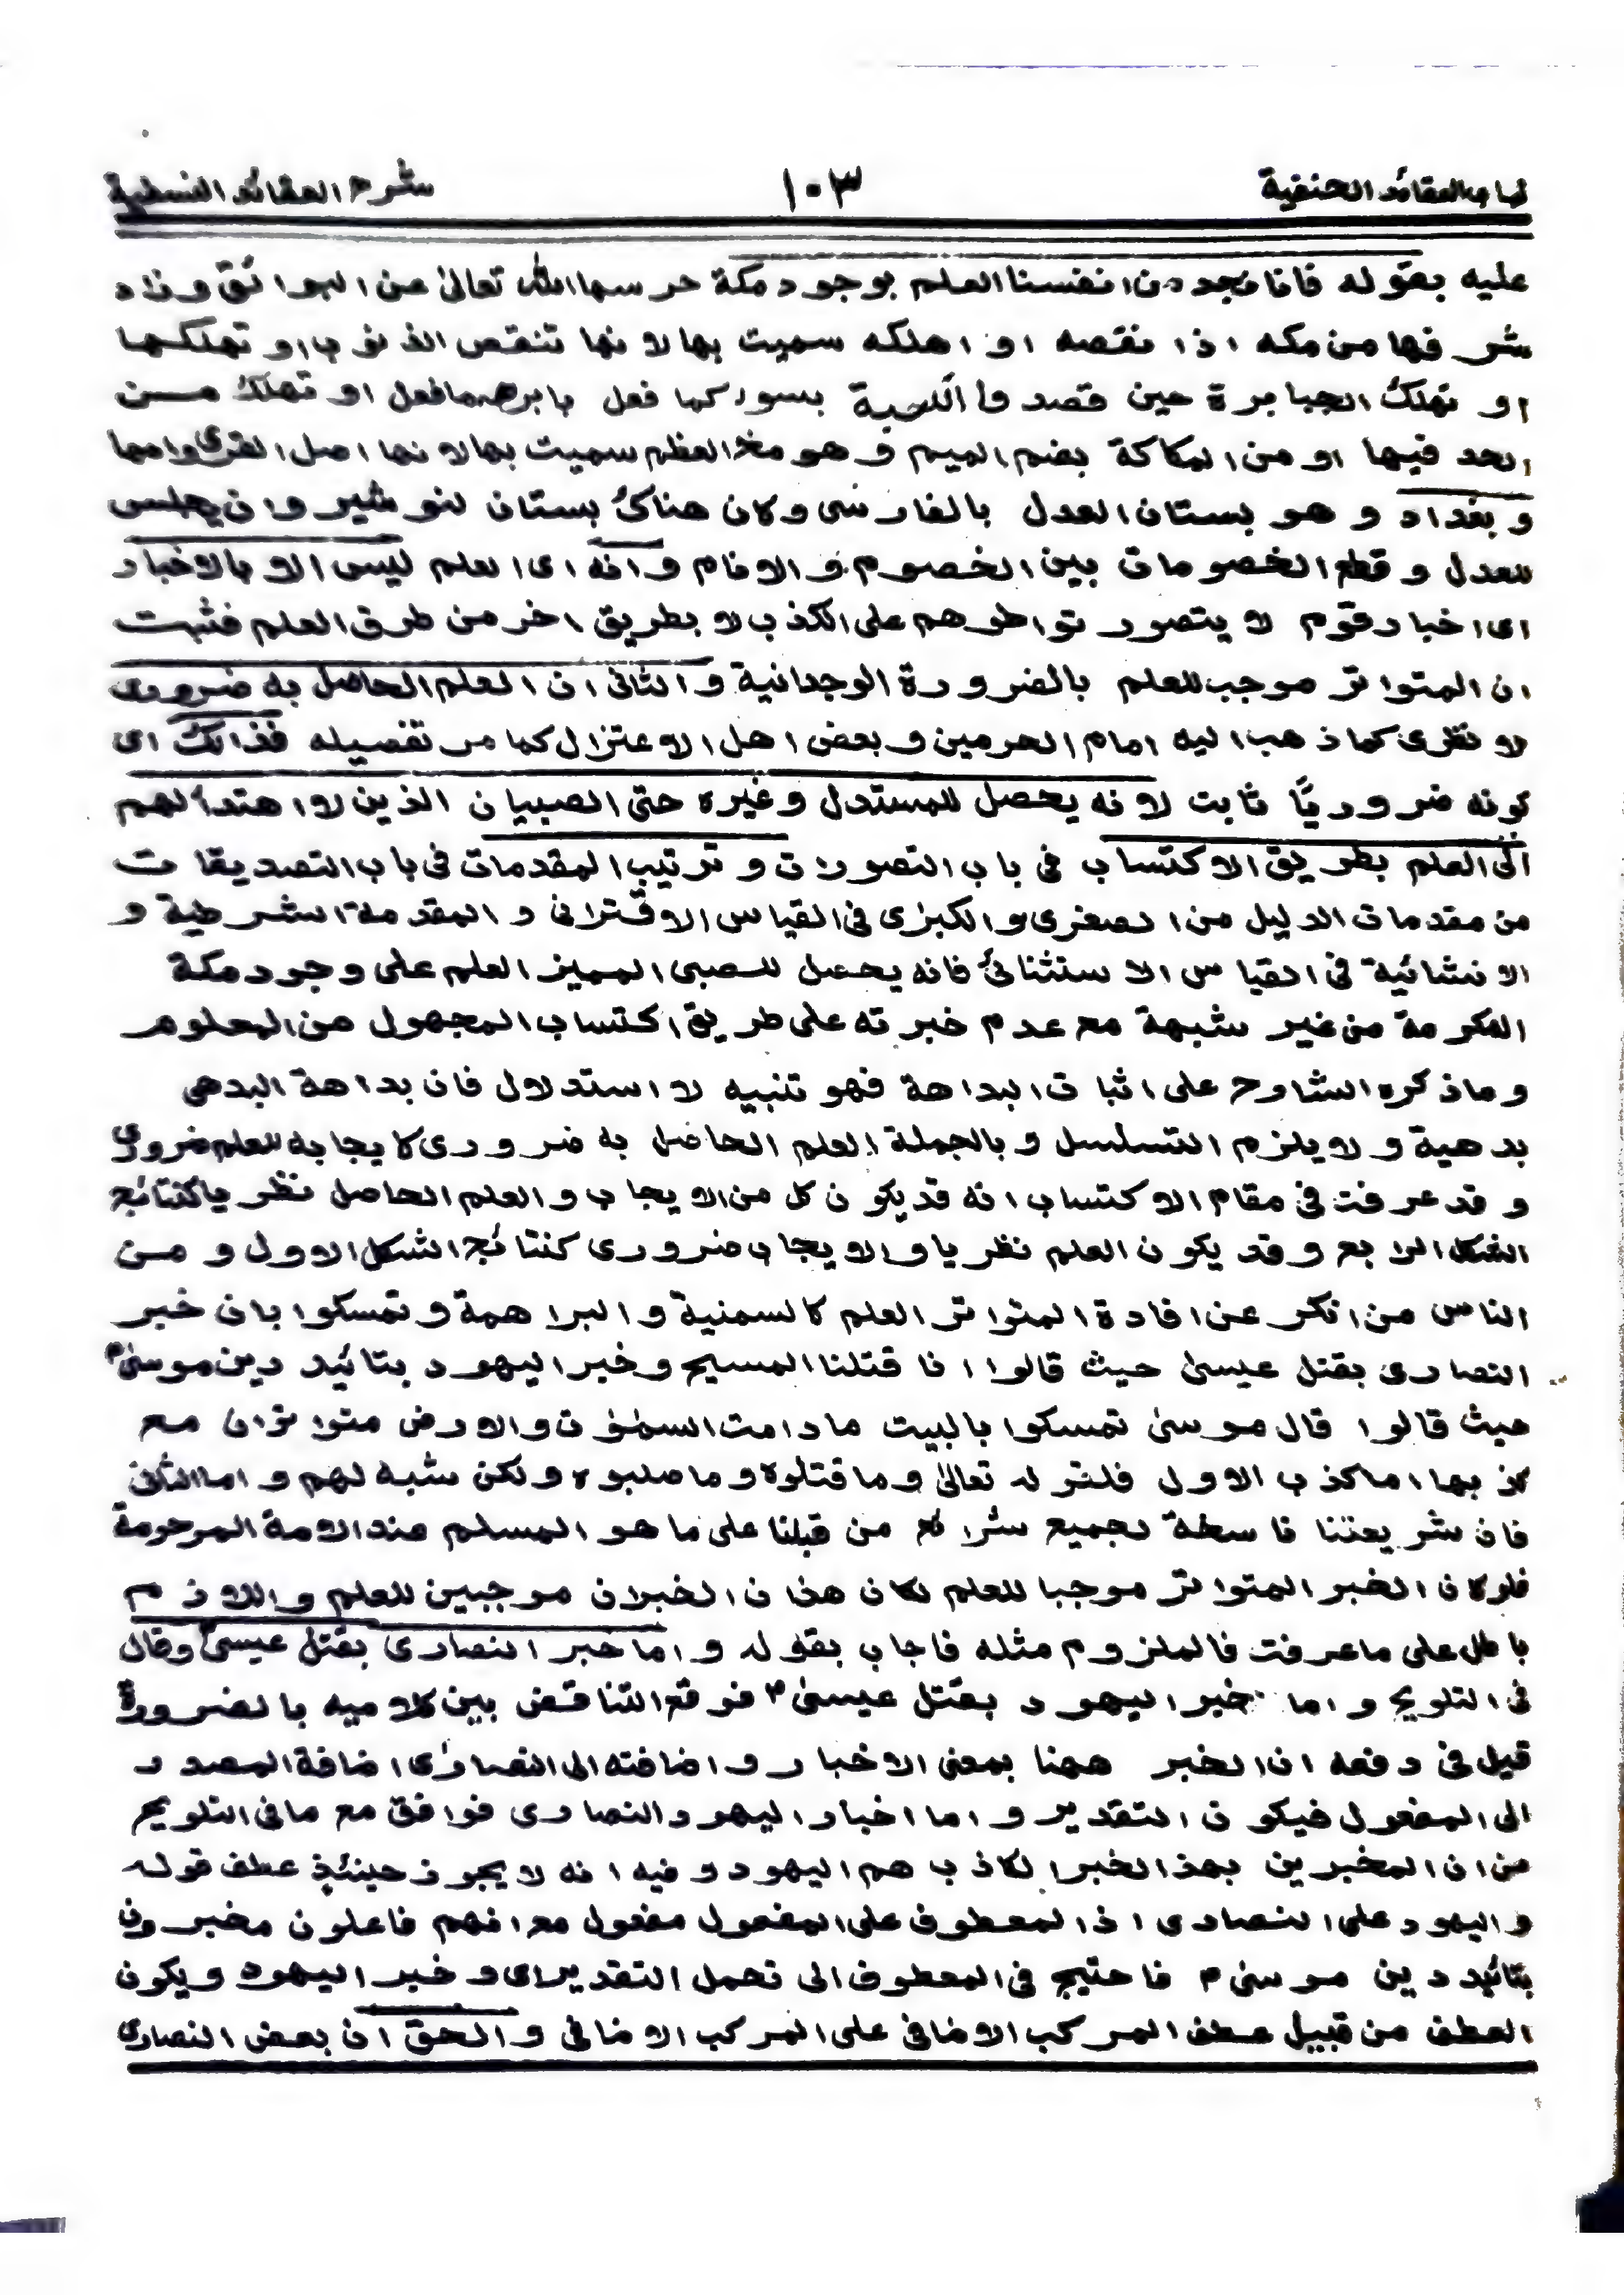 العقائد الحنفية ١٠٣ شرح العقائد النسفية
عليه بقوله فانا نجد من انفسنا العلم بوجود مكة حرسها الله تعالى عن البوائق وزاد
شرفها من مكه اذا نقصه او اهلكه سميت بها لانها تنقص الذنوب او تهلكها
او تهلك الجبابرة حين قصدوا الكعبة بسوء كما فعل بابرهه ما فعل او تهلك من
الحد فيها او من المكاكة بضم الميم وهو مخ العظم سميت بها لانها اصل القرى وامها
وبغداد وهو بستان العدل بالفارسى وكان هناك بستان لنوشيروان يجلس
للعدل وقطع الخصومات بين الخصوم والانام وانه اى العلم ليس الا بالاخبار
اى اخبار قوم لا يتصور تواطؤهم على الكذب لا بطريق اخر من طرق العلم فثبت
ان المتواتر موجب للعلم بالضرورة الوجدانية والثانى ان العلم الحاصل به ضرورى
لا نظرى كما ذهب اليه امام الحرمين وبعض اهل الاعتزال كما مر تفصيله فذالك اى
كونه ضروريًا ثابت لانه يحصل للمستدل وغيره حتى الصبيان الذين لا اهتداء لهم
الى العلم بطريق الاكتساب فى باب التصورات وترتيب المقدمات فى باب التصديقات
من مقدمات الدليل من الصغرى والكبرى فى القياس الاقترانى و المقدمة الشرطية و
الانشائية فى القياس الاستثنائى فانه يحصل للصبى المميز العلم على وجود مكة
المكرمة من غير شبهة مع عدم خبرته على طريق اكتساب المجهول من المعلوم
وما ذكره الشارح على اثبات البداهة فهو تنبيه لا استدلال فان بداهة البدهى
بدهية ولا يلزم التسلسل وبالجملة العلم الحاصل به ضرورى كايجابه للعلم ضرورى
وقد عرفت فى مقام الاكتساب انه قد يكون كل من الايجاب والعلم الحاصل نظريا كنتائج
الشكل الرابع وقد يكون العلم نظريا والايجاب ضرورى كنتائج الشكل الاول و من
الناس من انكر عن افادة المتواتر العلم كالسمنية والبراهمة وتمسكوا بان خبر
النصارى بقتل عيسىٰ حيث قالوا انا قتلنا المسيح وخبر اليهود بتائيد دين موسىٰ
حيث قالوا قال موسىٰ تمسكوا بالبيت ما دامت السمٰوٰت والارض متواتران مع
كذبها اما كذب الاول فلقوله تعالىٰ وما قتلوه وما صلبوه ولكن شبه لهم واما الثانى
فان شريعتنا ناسخة لجميع شرائع من قبلنا على ما هو المسلم عند الامة المرحومة
فلو كان الخبر المتواتر موجبا للعلم لكان هذان الخبران موجبين للعلم واللازم
باطل على ما عرفت فالملزوم مثله فاجاب بقوله واما خبر النصارى بقتل عيسىٰ وقال
فى التلويح واما خبر اليهود بقتل عيسىٰ فوقع التناقض بين كلاميه بالضرورة
قيل فى دفعه ان الخبر ههنا بمعنى الاخبار واضافته الى النصارى اضافة المصدر
الى المفعول فيكون التقدير واما اخبار اليهود النصارى فوافق مع ما فى التلويح
من ان المخبرين بهذا الخبر الكاذب هم اليهود وفيه انه لا يجوز حينئذٍ عطف قوله
واليهود على النصارى اذ المعطوف على المفعول مفعول مع انهم فاعلون مخبرون
بتائيد دين موسىٰ فاحتيج فى المعطوف الى تحمل التقدير اى وخبر اليهود ويكون
العطف من قبيل عطف المركب الاضافى على المركب الاضافى والحق ان بعض النصارى